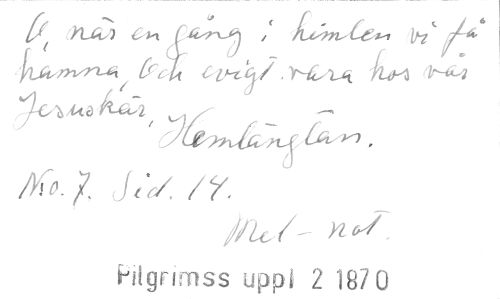 O, när en gång i himlen vi få
hamna, Och evigt vara hos vår
Jesus kär,
Hemlängtan.
No. 7. Sid. 14.
Mel-not.
Pilgrimss uppl 2 1870